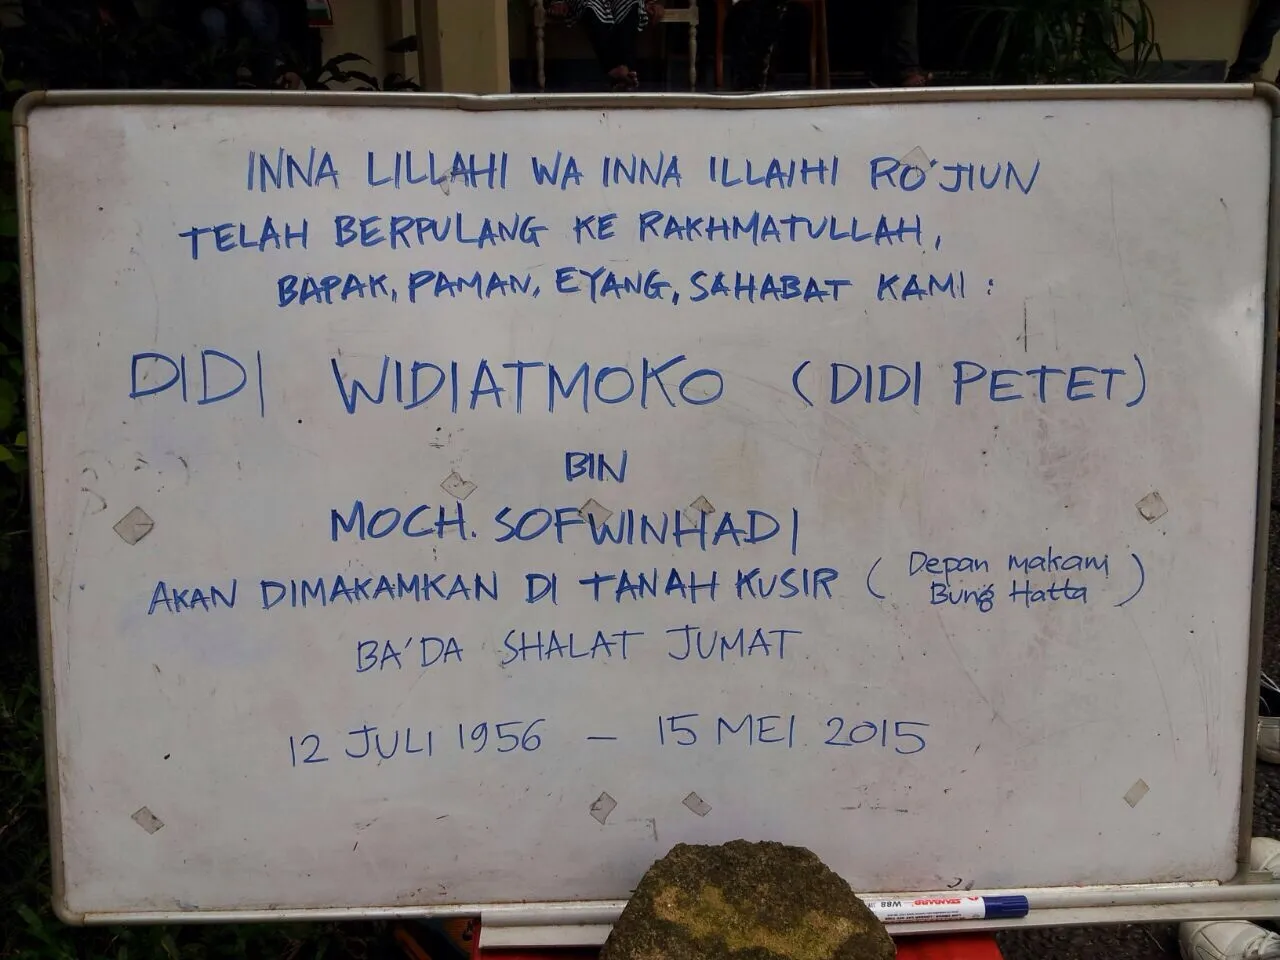 INNA LILLAHI WA INNA ILLAIHI RO'JIUN
TELAH BERPULANG KE RAKHMATULLAH,
BAPAK, PAMAN, EYANG, SAHABAT KAMI :
DIDI WIDIATMOKO (DIDI PETET)
BIN
MOCH. SOFWINHADI
AKAN DIMAKAMKAN DI TANAH KUSIR (Depan makam Bung Hatta)
BA'DA SHALAT JUMAT
12 JULI 1956 – 15 MEI 2015
STANDARD W88